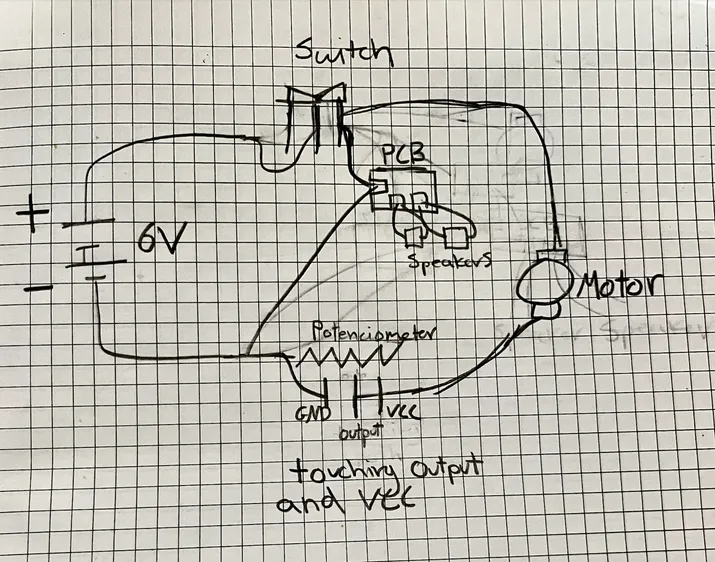 Switch
PCB
+
6V
-
Speakers
Motor
Potenciometer
GND
VCC
output
touching output
and VCC